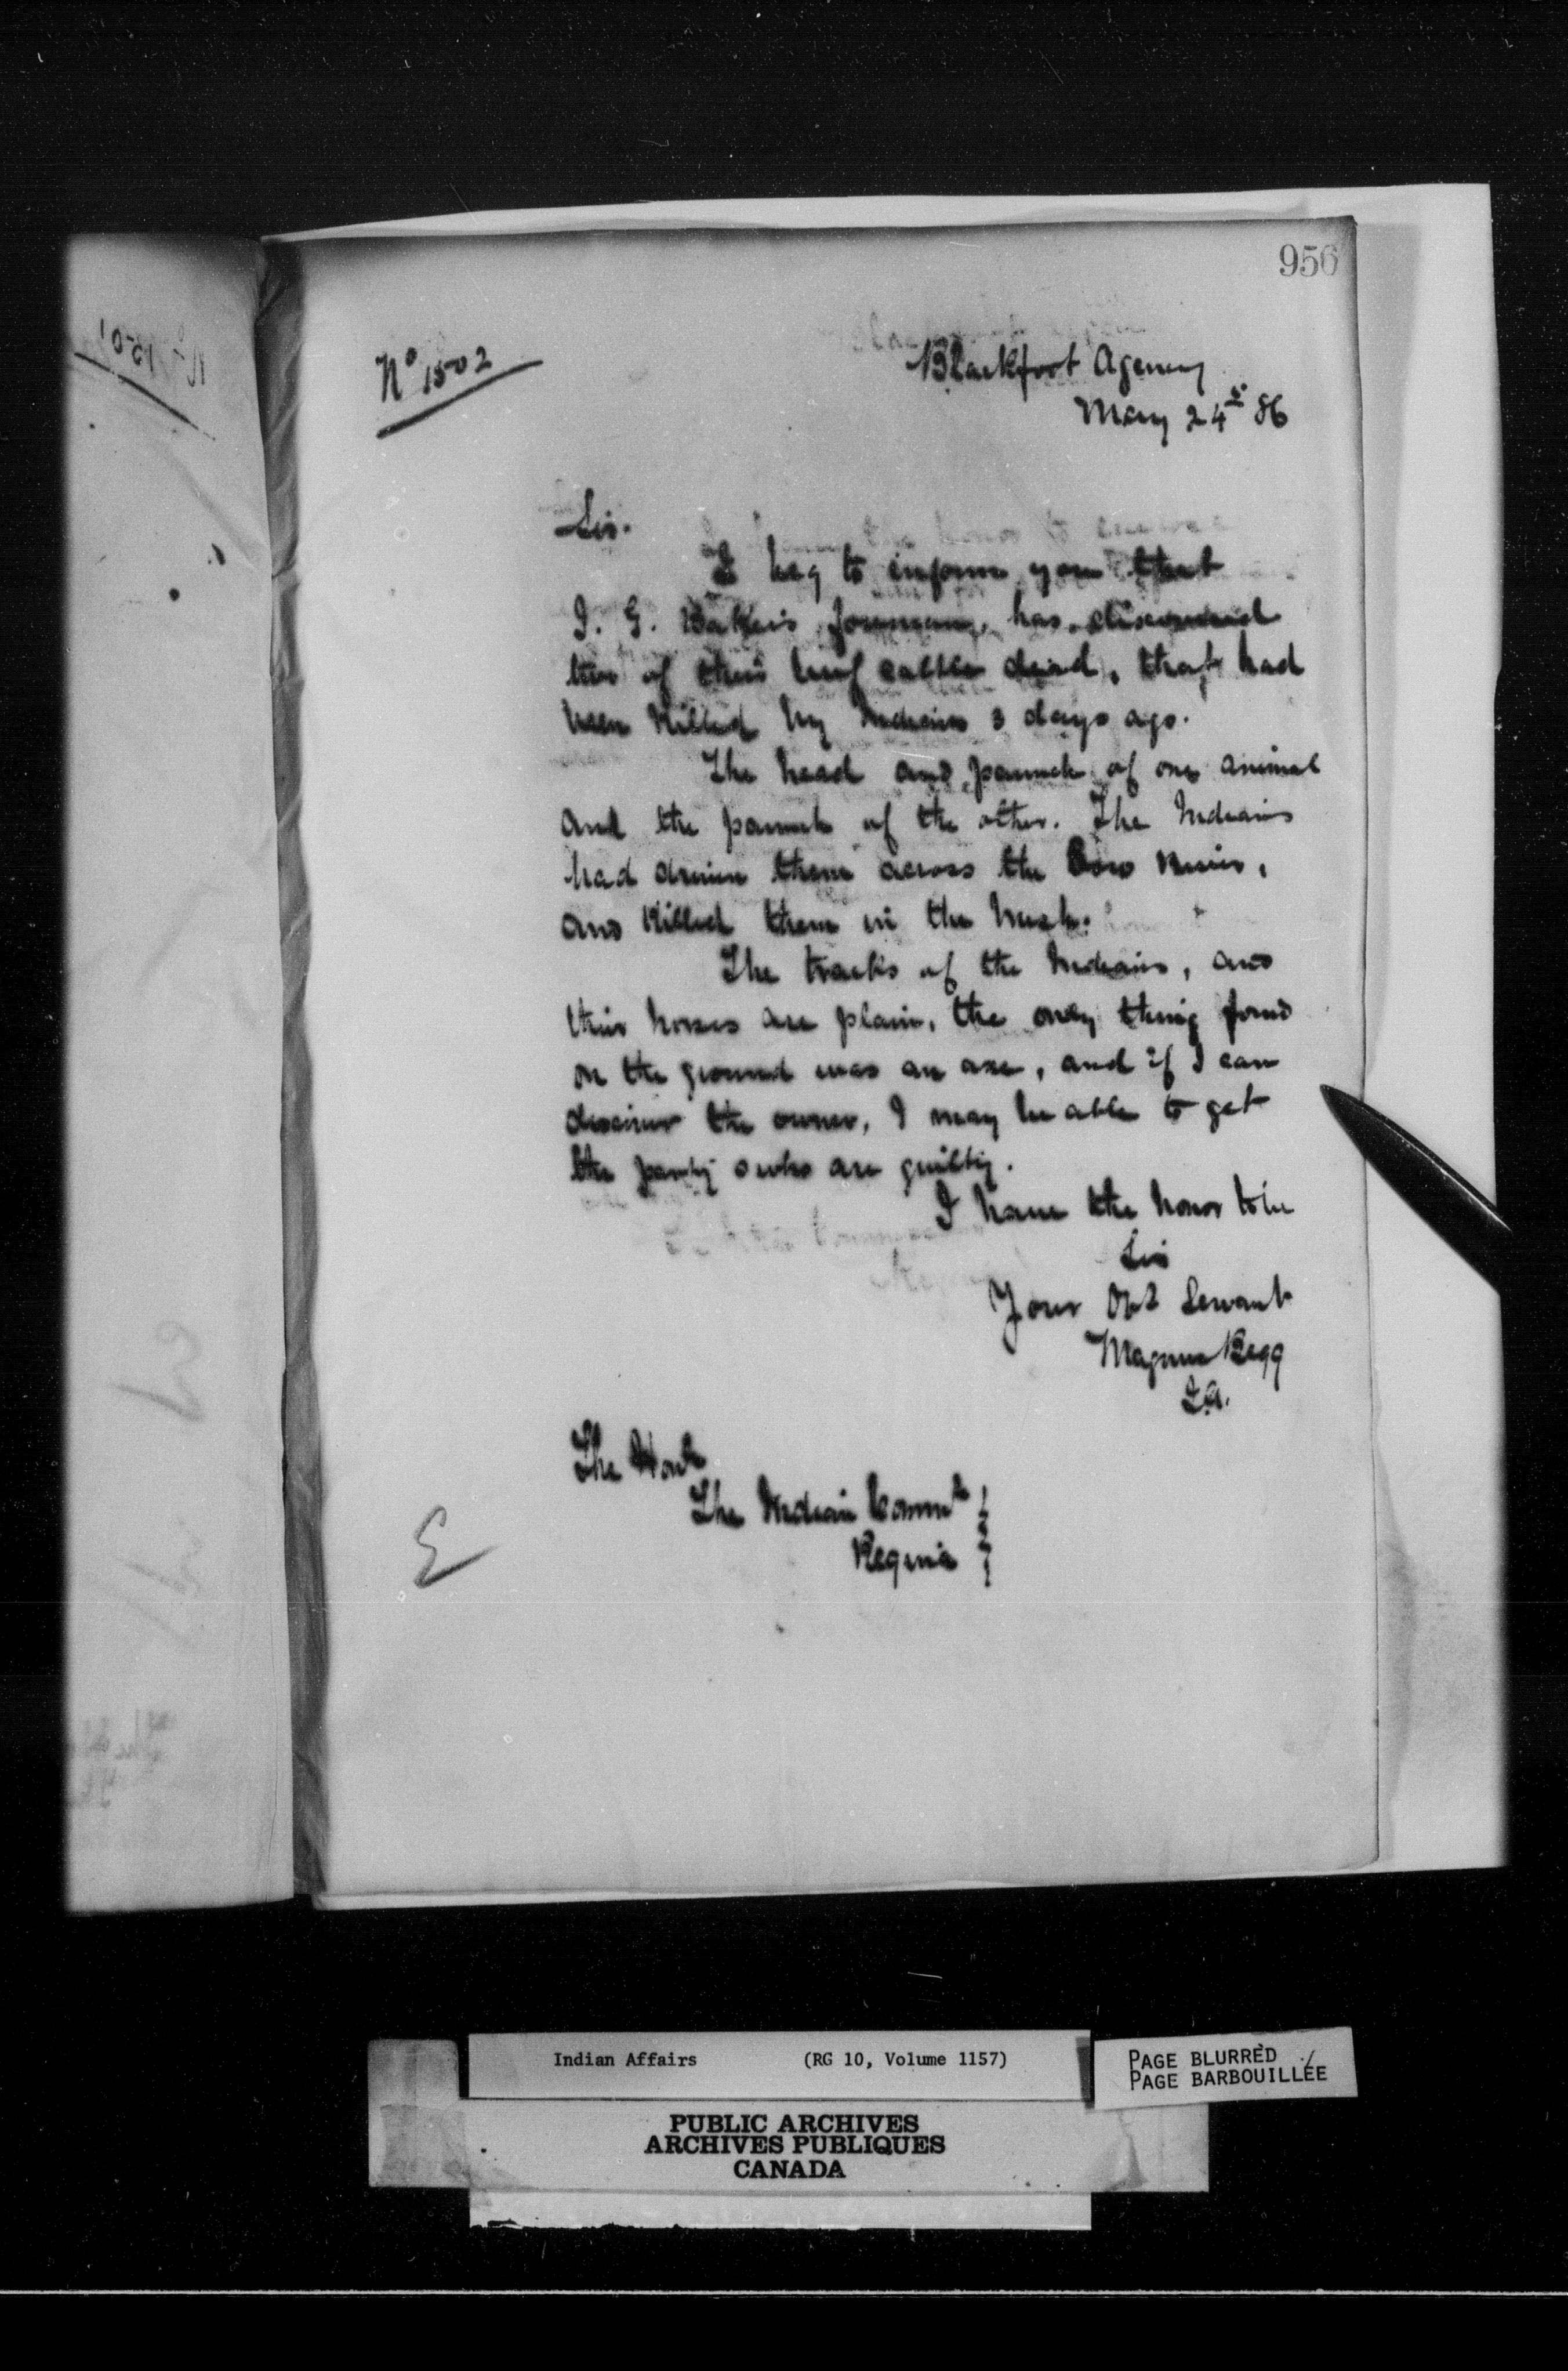 956
No 1502
Blackfoot Agency
May 24th 86
Sir.
I beg to inform you that
I. G. Baker's foreman, has discovered
two of their beef cattle dead, that had
been Killed by Indians 3 days ago.
The head and paunch of one animal
and the paunch of the other. The Indians
had driven them across the Bow River,
and Killed them in the bush.
The tracks of the Indians, and
their horses are plain, the only thing found
on the ground was an axe, and if I can
discover the owner, I may be able to get
the party who are guilty.
I have the honor to be
Sir
Your Obt Servant
Magnus Begg
I.A.
The Honb
The Indian Commr
Regina
E
Indian Affairs (RG 10, Volume 1157)
PAGE BLURRED
PAGE BARBOUILLÉE
PUBLIC ARCHIVES
ARCHIVES PUBLIQUES
CANADA